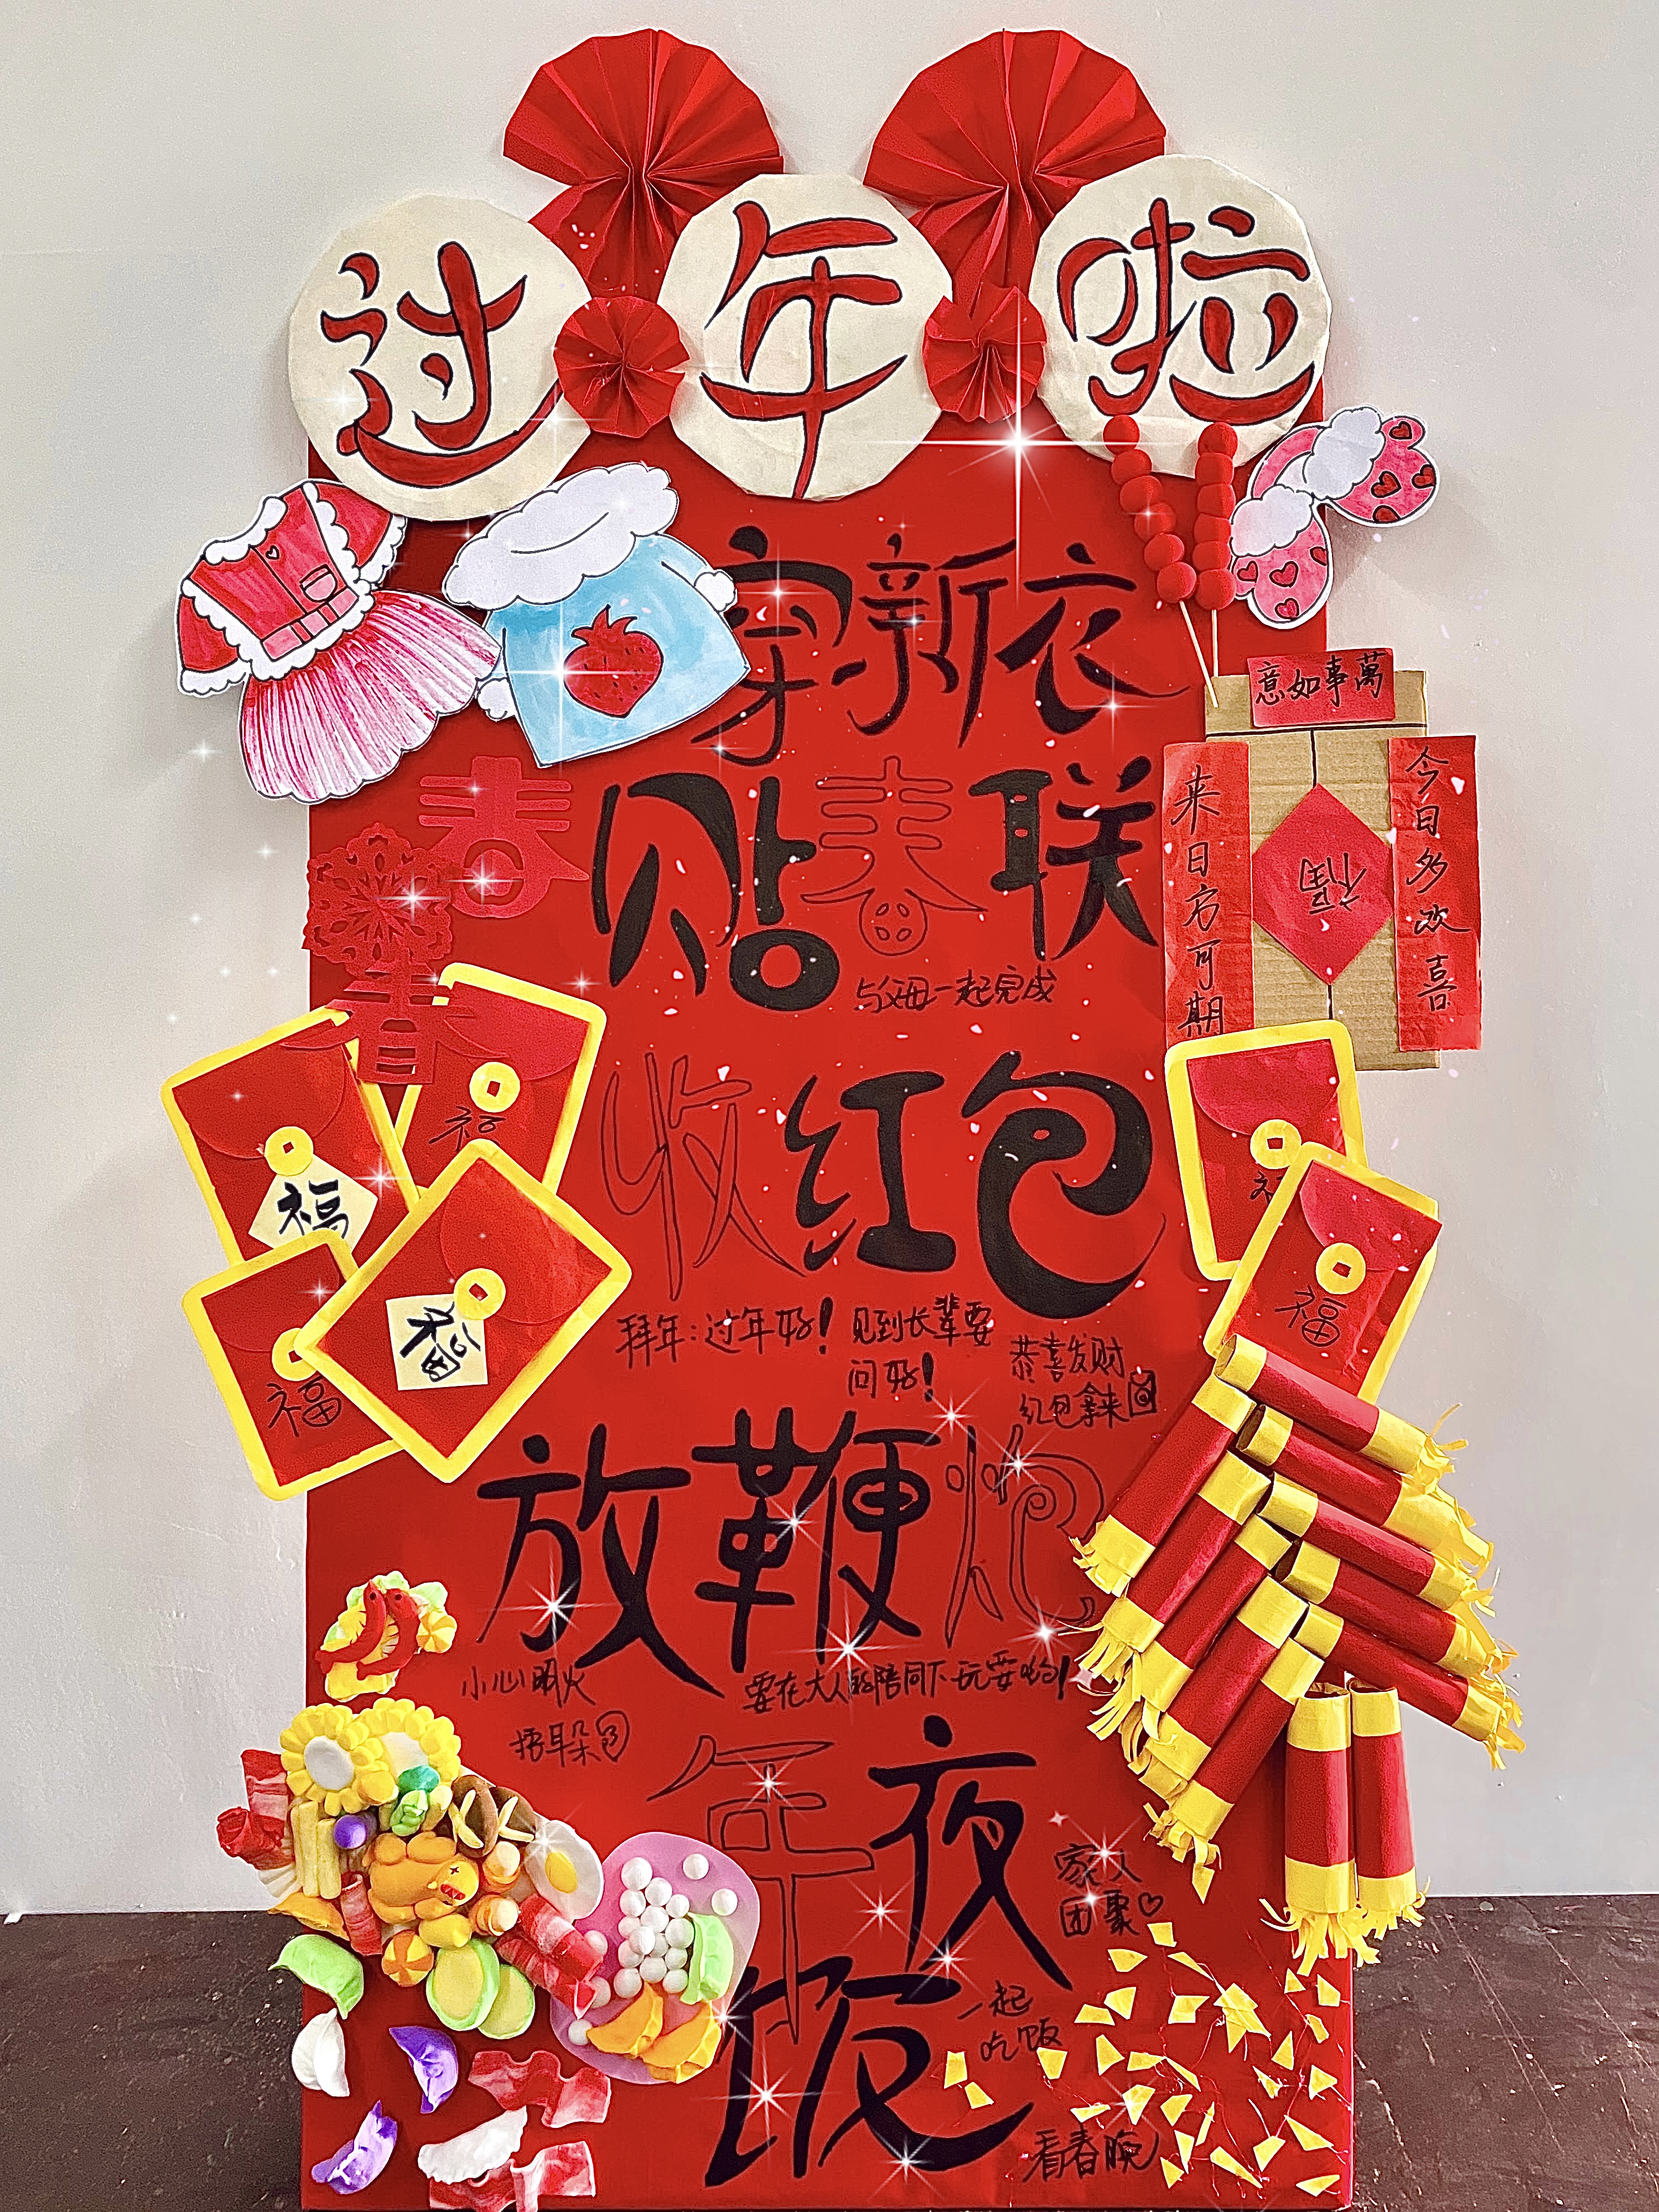 过年啦
穿新衣
萬事如意
春
贴春联
与父母一起完成
今日多欢喜
来日方可期
福
春
收红包
福
福
福
福
福
福
拜年:过年好!
见到长辈要
问好!
恭喜发财
红包拿来
放鞭炮
小心明火
捂耳朵
要在大人的陪同下玩耍哟!
年夜饭
家人
团聚♡
一起
吃饭
看春晚